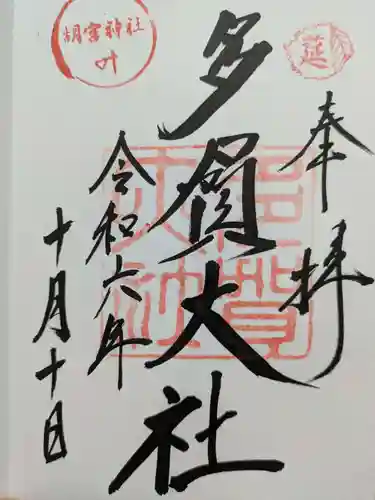 奉拝
多賀大社
令和六年
十月十日
胡宮神社
叶
莚
多賀大社